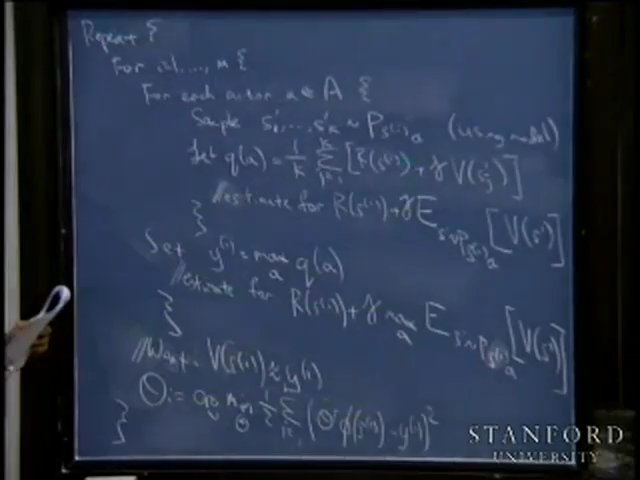 Repeat {
For i=1,...,m {
For each action a ∈ A {
Sample s'₁,...,s'ₖ ~ P_{s⁽ⁱ⁾a} (using model)
Set q(a) = 1/k Σ_{j=1}^{k} [R(s⁽ⁱ⁾) + γ V(s'ⱼ)]
//estimate for R(s⁽ⁱ⁾) + γ E_{s'~P_{s⁽ⁱ⁾a}} [V(s')]
}
Set y⁽ⁱ⁾ = max_a q(a)
//estimate for R(s⁽ⁱ⁾) + γ max_a E_{s'~P_{s⁽ⁱ⁾a}} [V(s')]
}
//Want V(s⁽ⁱ⁾) ≈ y⁽ⁱ⁾
Θ := arg min_θ 1/2 Σ_{i=1} (Θᵀ φ(s⁽ⁱ⁾) - y⁽ⁱ⁾)²
}
STANFORD
UNIVERSITY